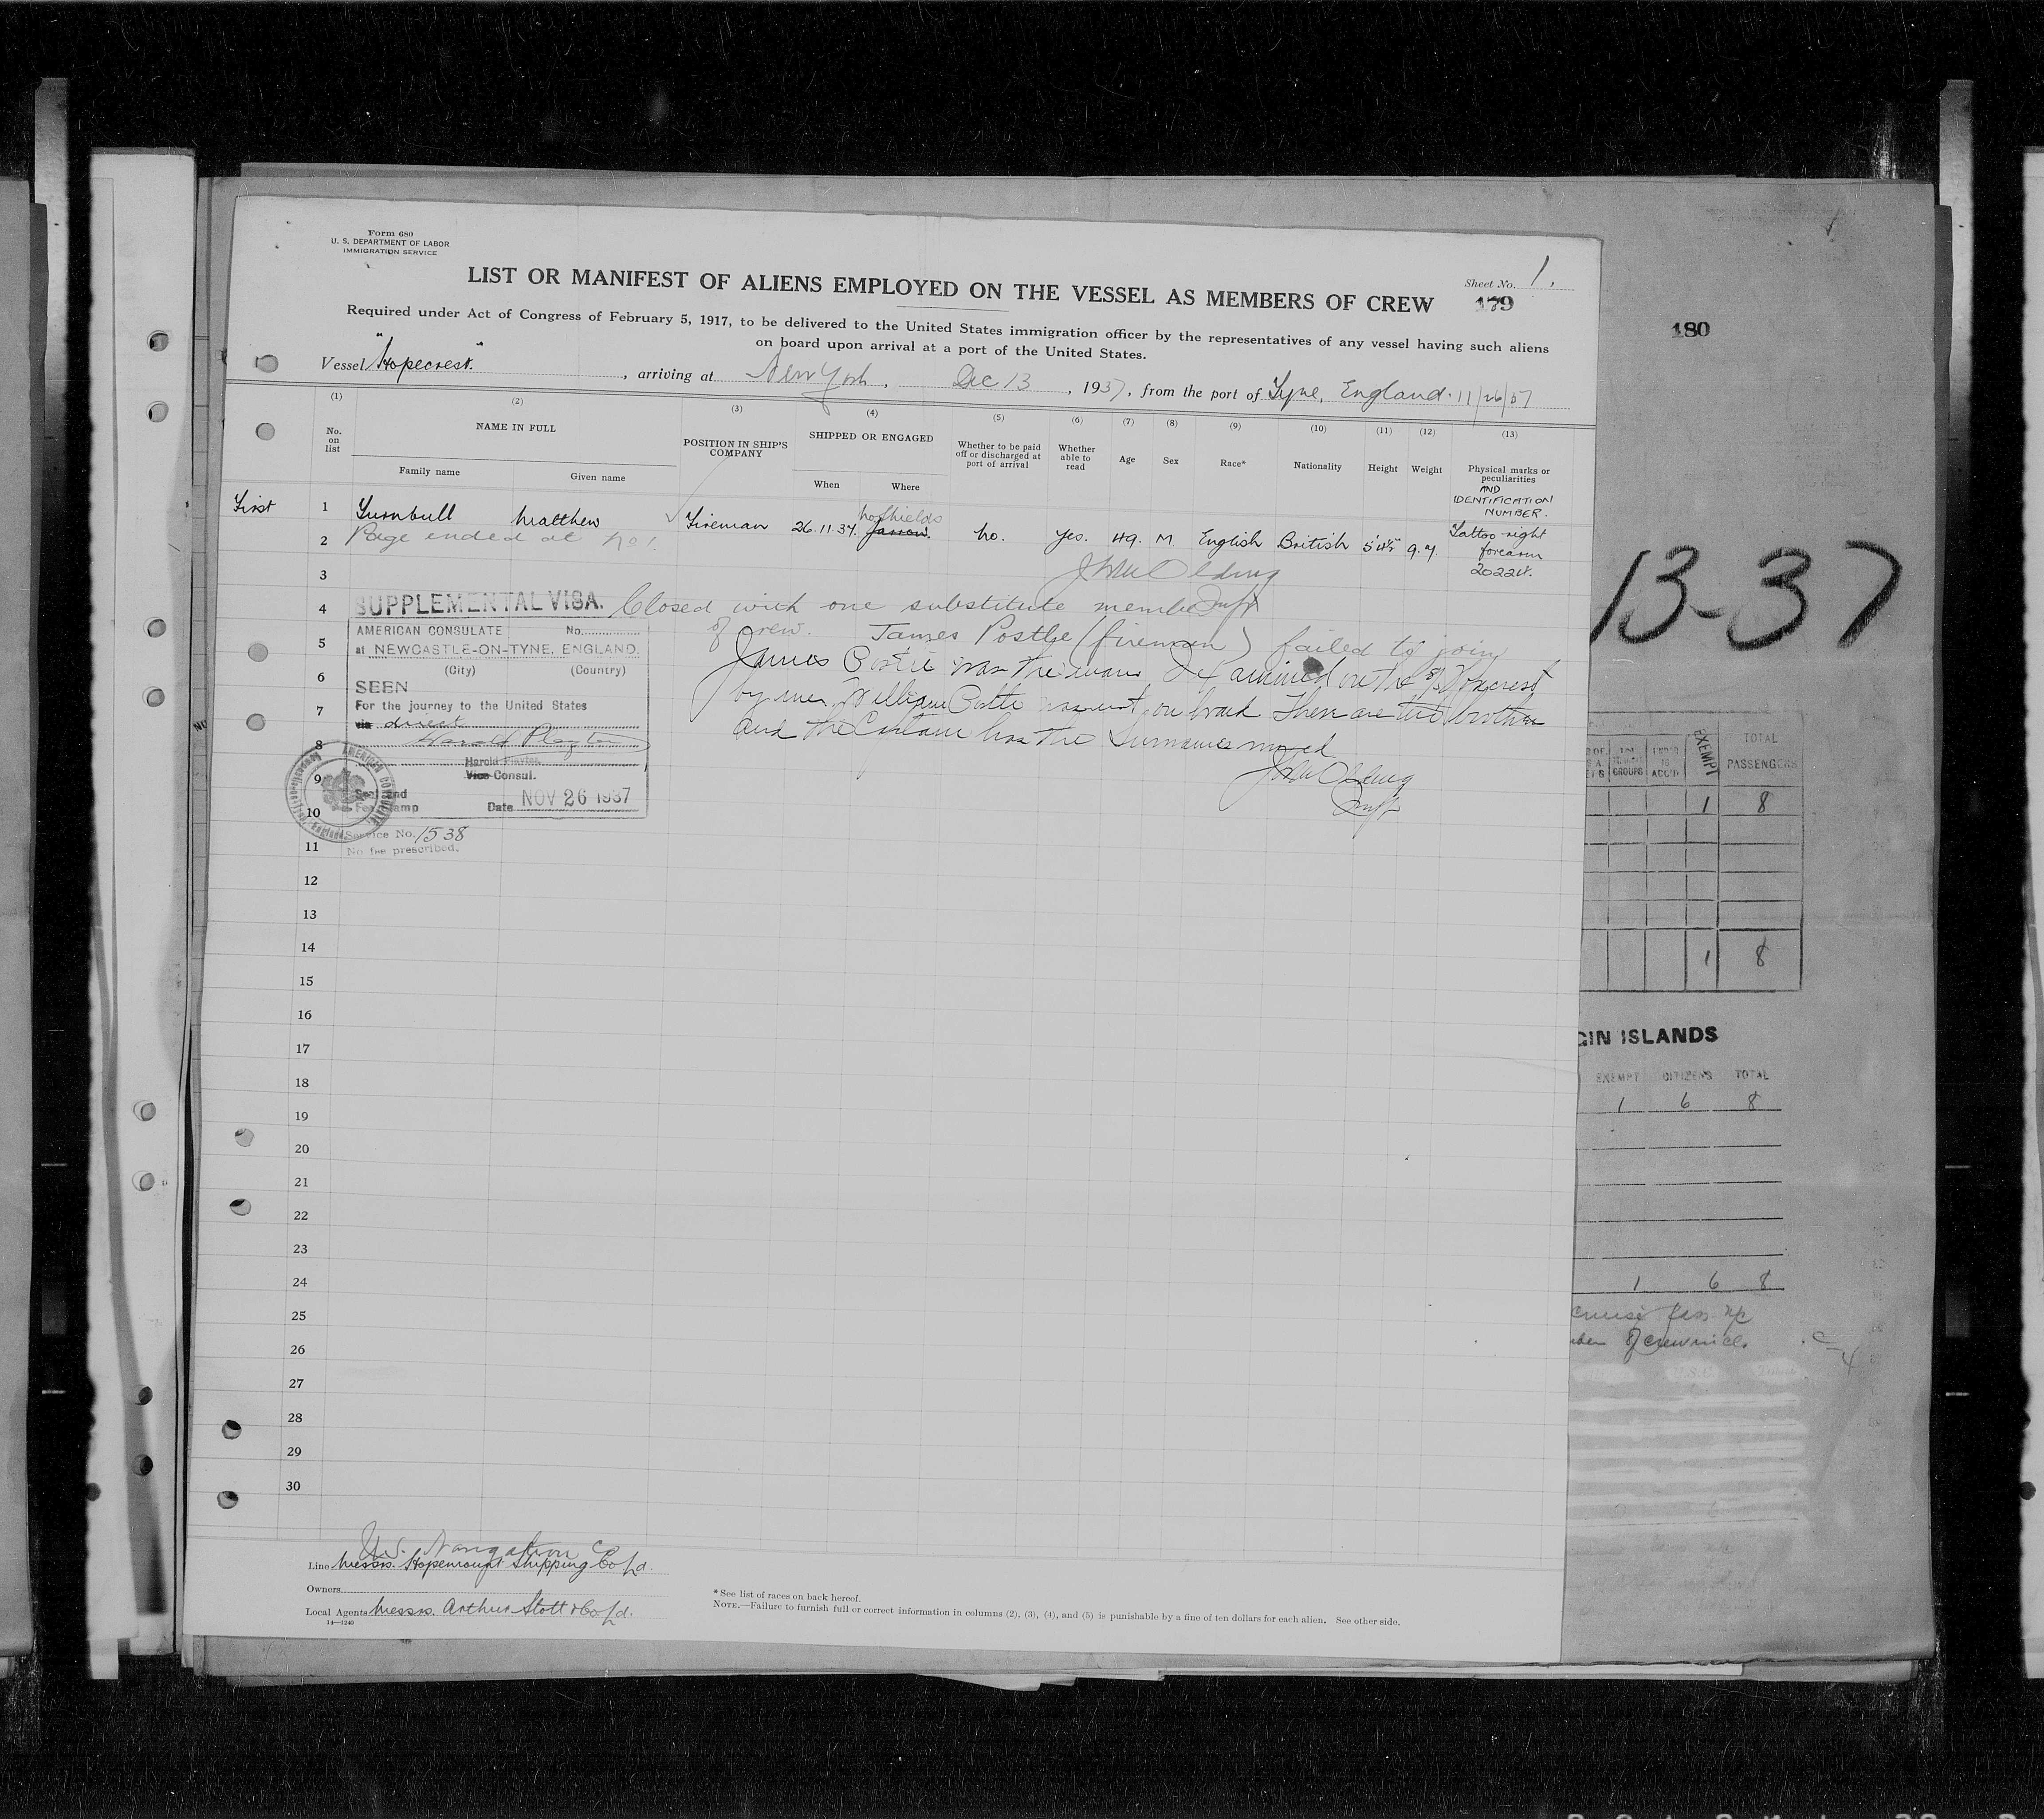 Form 680
U. S. DEPARTMENT OF LABOR
IMMIGRATION SERVICE
LIST OR MANIFEST OF ALIENS EMPLOYED ON THE VESSEL AS MEMBERS OF CREW
Sheet No. 1.
179
180
Required under Act of Congress of February 5, 1917, to be delivered to the United States immigration officer by the representatives of any vessel having such aliens
on board upon arrival at a port of the United States.
Vessel "Hopecrest", arriving at New York, Dec 13, 1937, from the port of Tyne, England. 11/26/37
(1) (2) (3) (4) (5) (6) (7) (8) (9) (10) (11) (12) (13)
No. on list
NAME IN FULL
Family name Given name
POSITION IN SHIP'S COMPANY
SHIPPED OR ENGAGED
When Where
Whether to be paid off or discharged at port of arrival
Whether able to read
Age Sex Race* Nationality Height Weight
Physical marks or peculiarities
AND IDENTIFICATION NUMBER.
First 1 Turnbull Matthew Fireman 26.11.37. No Shields Jarrow. No. Yes. 49. M. English British 5'4½" 9.7. Tattoo right forearm 202214.
2 Page ended at No 1.
3
4 SUPPLEMENTAL VISA. Closed with one substitute member
of crew. James Postle (fireman) failed to join
5 AMERICAN CONSULATE No.
at NEWCASTLE-ON-TYNE, ENGLAND.
(City) (Country)
James Postle was the man examined on the S/S Hopecrest
6 SEEN
by me, William Postle was not on board There are two brothers
7 For the journey to the United States
via direct
and the Captain has the Surnames mixed
8 Harold Playter
Harold Playter
9 Vice Consul.
Seal and
Fee Stamp
10 Date NOV 26 1937
AMERICAN CONSULATE
Service No. 1538
11 No fee prescribed.
12
13
14
15
16
17
18
19
20
21
22
23
24
25
26
27
28
29
30
U.S. Navigation Co
Line Messrs. Hopemount Shipping Co Ld.
Owners
Local Agents Messrs. Arthur Stott & Co Ld.
14—1240
* See list of races on back hereof.
NOTE.—Failure to furnish full or correct information in columns (2), (3), (4), and (5) is punishable by a fine of ten dollars for each alien. See other side.
13-37
GROUPS
ACC'D
EXEMPT
TOTAL PASSENGERS
1 8
1 8
GIN ISLANDS
EXEMPT CITIZENS TOTAL
1 6 8
1 6 8